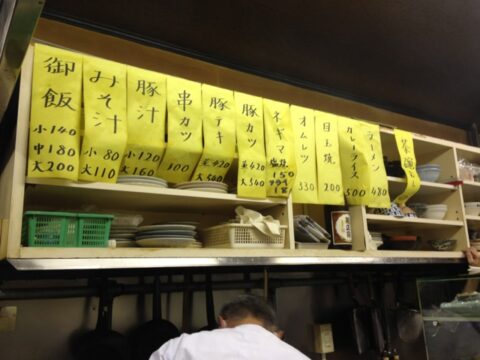 御飯
小 140
中 180
大 200
みそ汁
小 80
大 110
豚汁
小 120
大 160
串カツ
300
豚テキ
並 420
大 540
豚カツ
並 420
大 540
ネギマ
塩焼
150
オムレツ
330
目玉焼
200
カレーライス
500
ラーメン
480